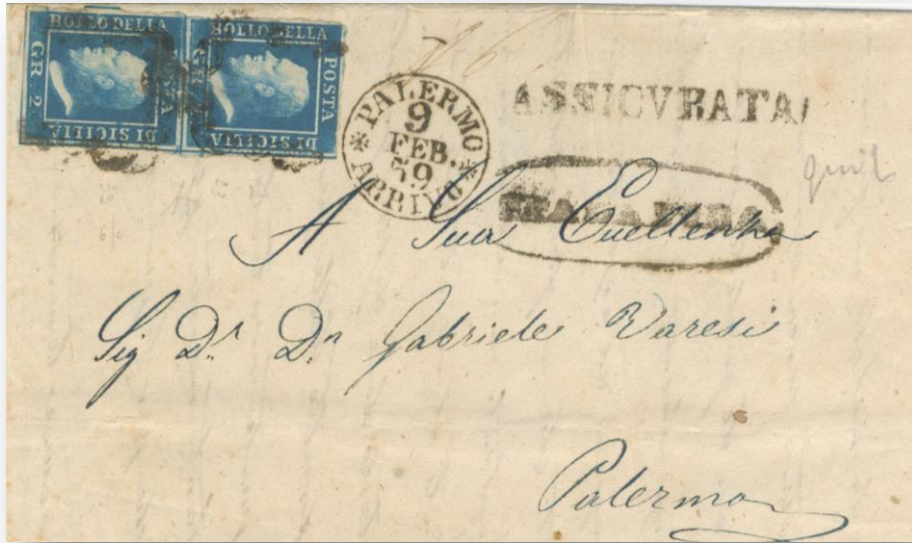 BOLLO DELLA
POSTA
DI SICILIA
GR. 2.
BOLLO DELLA
POSTA
DI SICILIA
GR. 2
PALERMO
9
FEB.
59
ARRIVO
ASSICVRATA
A Sua Eccellenza
Sig Dr Dn Gabriele Varesi
Palermo